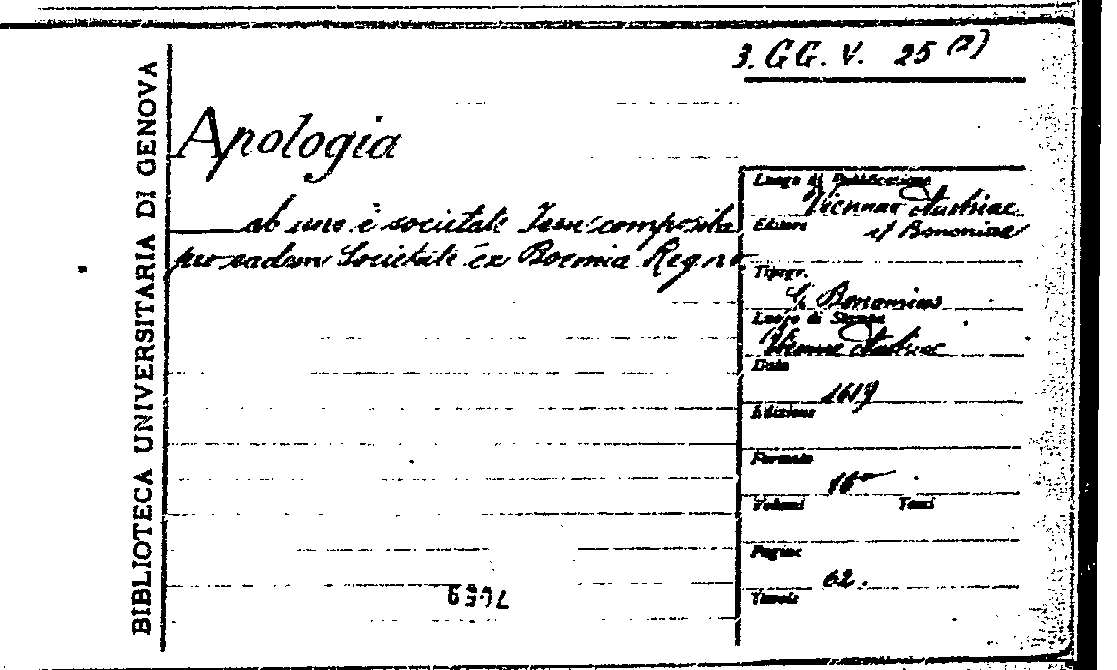 3. GG. V. 25 (2)
BIBLIOTECA UNIVERSITARIA DI GENOVA
Apologia
ab uno è societate Iesu composita
pro eadem Societate ex Boemia Regno
Luogo di Pubblicazione
Viennae Austriae
Editori
et Bononiae
Tipogr.
Bonomius
Luogo di Stampa
Vienne Austriae
Data
1619
Edizione
Formato
16°
Volumi Tomi
Pagine
62.
Tavole